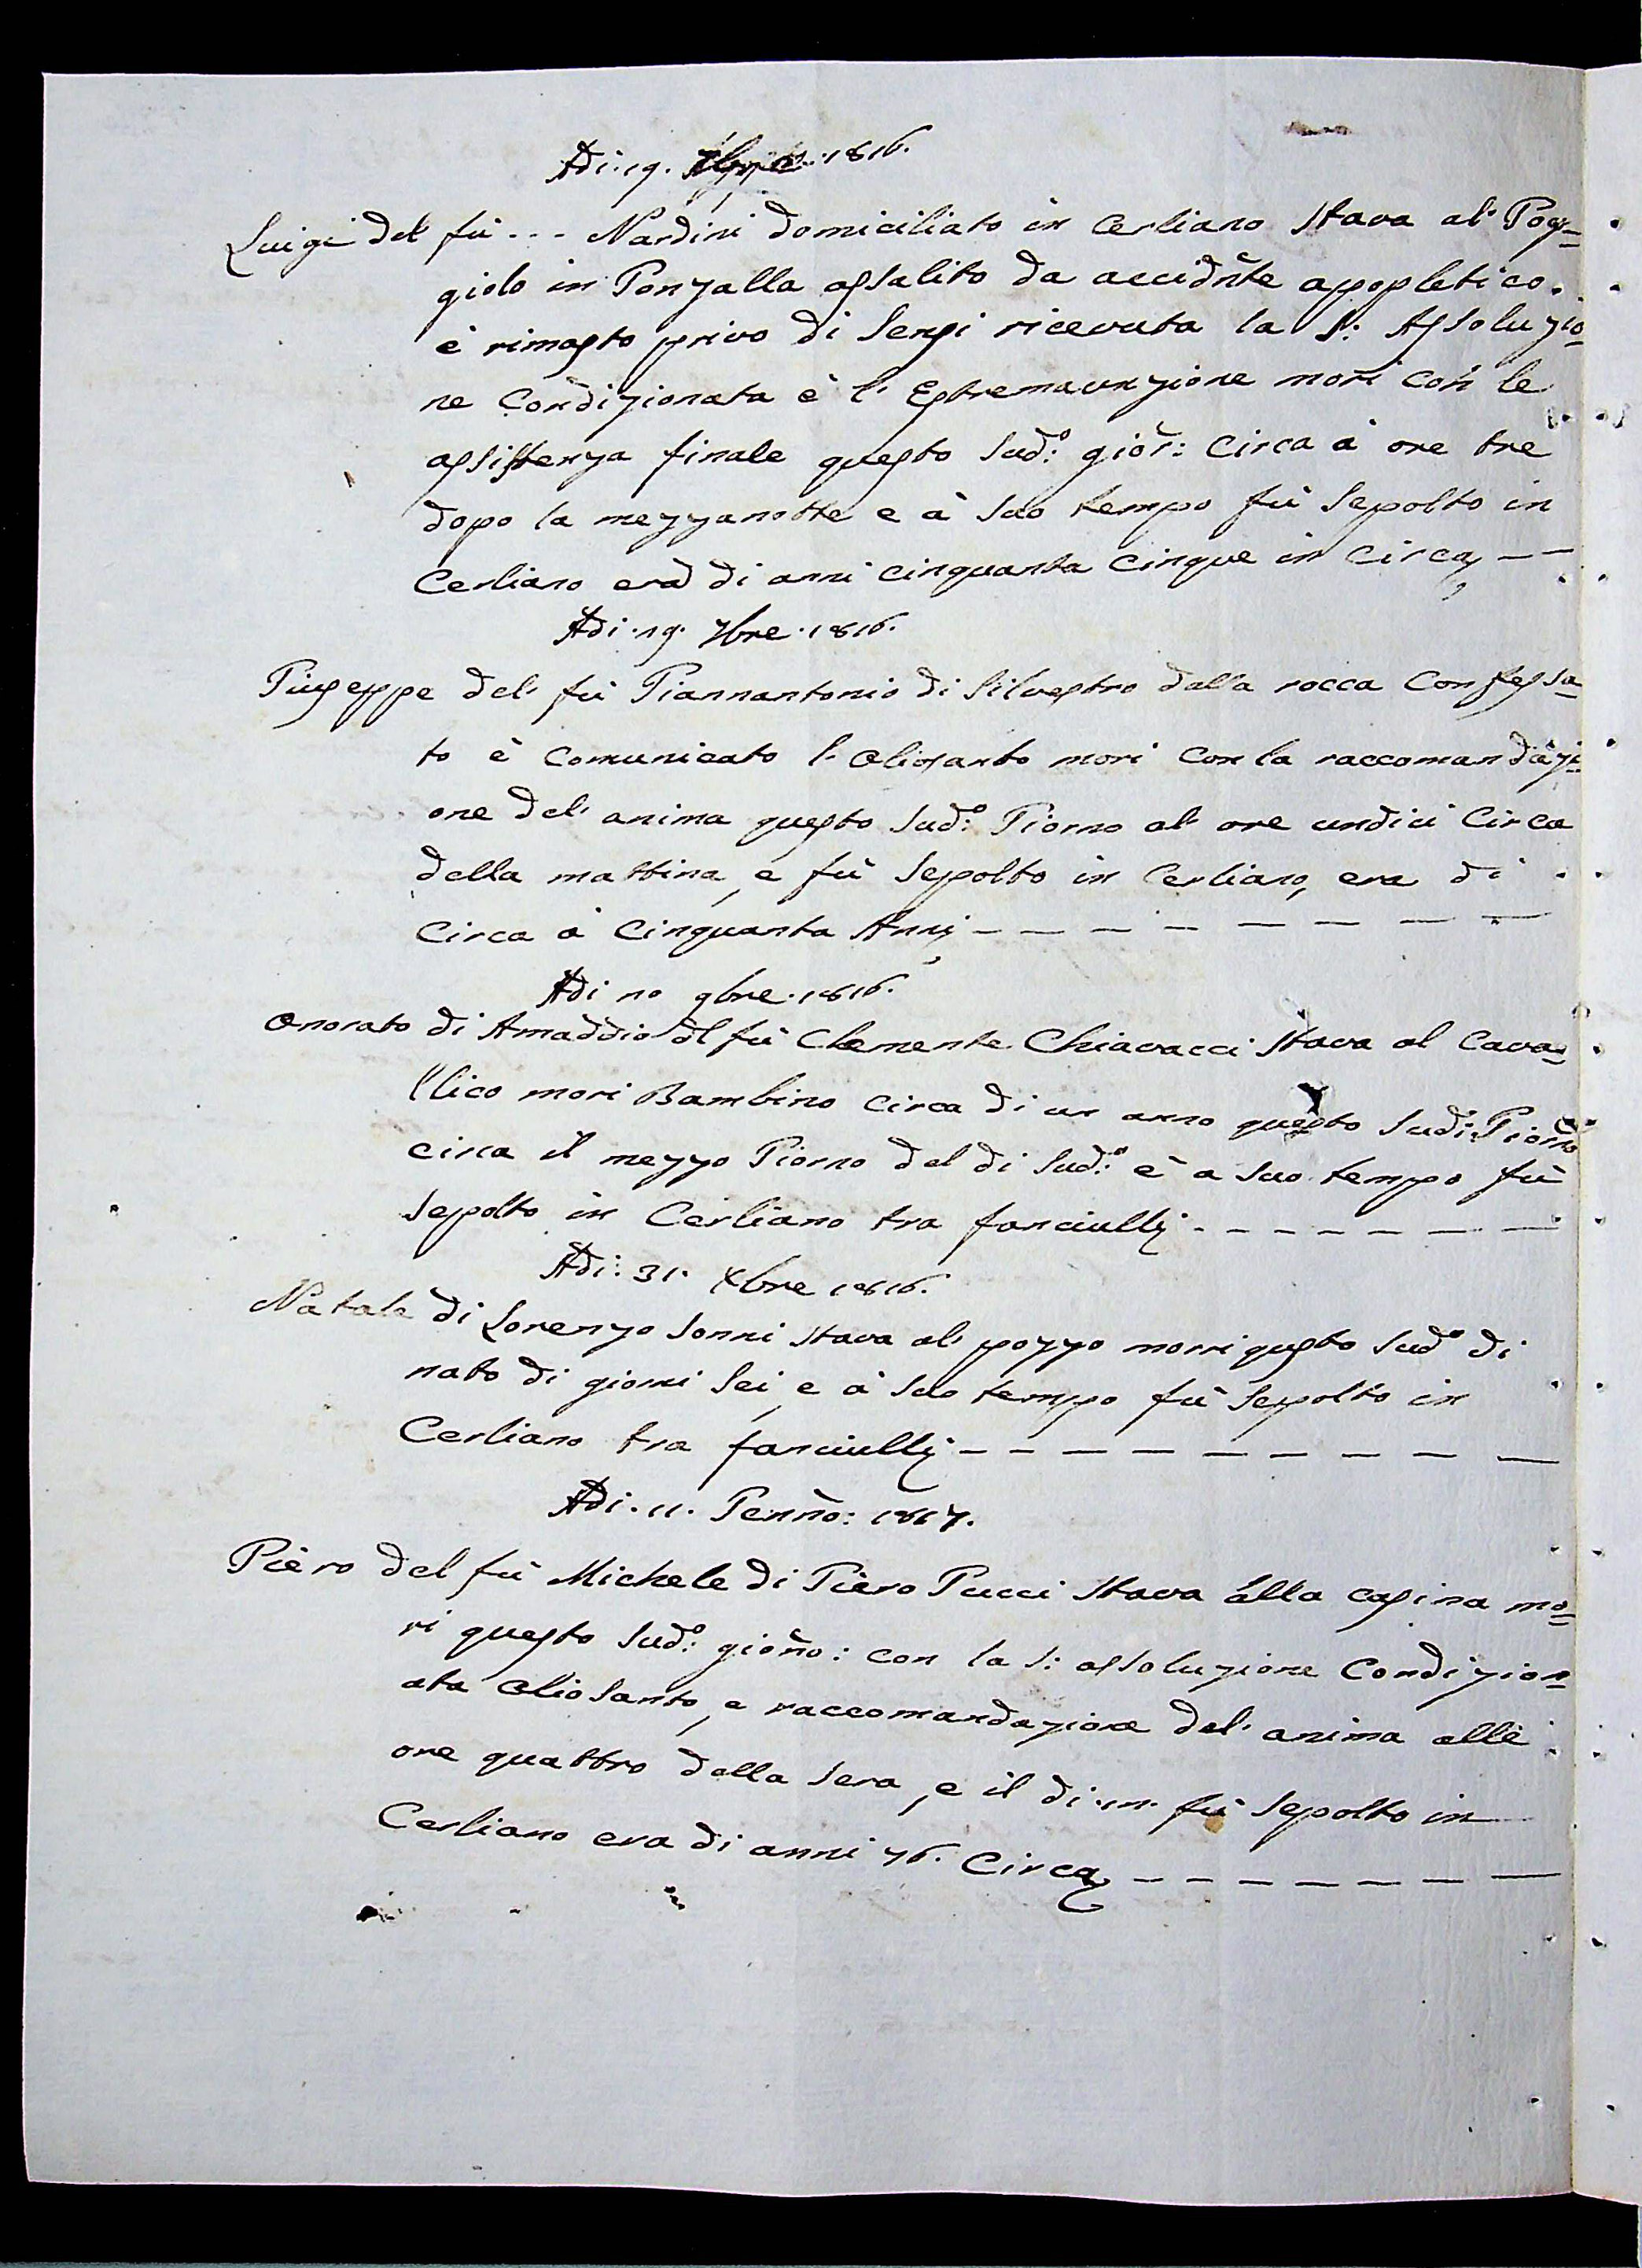 Adi. 19. 7bre. 1816.
Luigi del fù --- Nardini domiciliato in Cerliano stava al' Pog=
giolo in Ponzalla assalito da accidñte apopletico.
è rimasto privo di sensi ricevuta la S: Assoluzio=
ne Condizionata è l' Estremaunzione morì con le
assistenza finale questo Sud:º gior: Circa à ore tre
dopo la mezzanotte e à suo tempo fù Sepolto in
Cerliano era di anni cinquanta Cinque in Circa --
Adi. 19. 7bre. 1816.
Giuseppe del' fù Giannantonio di Silvestro dalla rocca Confessa=
to è Comunicato l' Oliosanto mori Con la raccomandazi=
one del' anima questo Sud:º Giorno al' ore undici Circa
della mattina, e fù Sepolto in Cerliano, era di
Circa à Cinquanta Anni - - - - - - - - -
Adi 10 9bre. 1816.
Onorato di Amaddio dl fù Clemente Chiavacci stava al Cava=
llico mori Bambino circa di un anno questo Sud: Giorno
circa il mezzo Giorno del di Sud:º è a suo tempo fù
Sepolto in Cerliano tra fanciulli - - - - - - -
Adi: 31. Xbre 1816.
Natale di Lorenzo Sonni stava al' pozzo morri questo Sudº di
nato di giorni Sei, e à suo tempo fù Sepolto in
Cerliano tra fanciulli - - - - - - - - -
Adi. 11. Gennõ: 1817.
Piero del fù Michele di Piero Pucci stava alla casina mo=
ri questo Sud:º giorño: con la S: assoluzione Condizion=
ata Oliosanto, e raccomandazione del' anima alle
ore quattro della Sera, e il di fù Sepolto in
Cerliano era di anni 76. Circa - - - - - - -